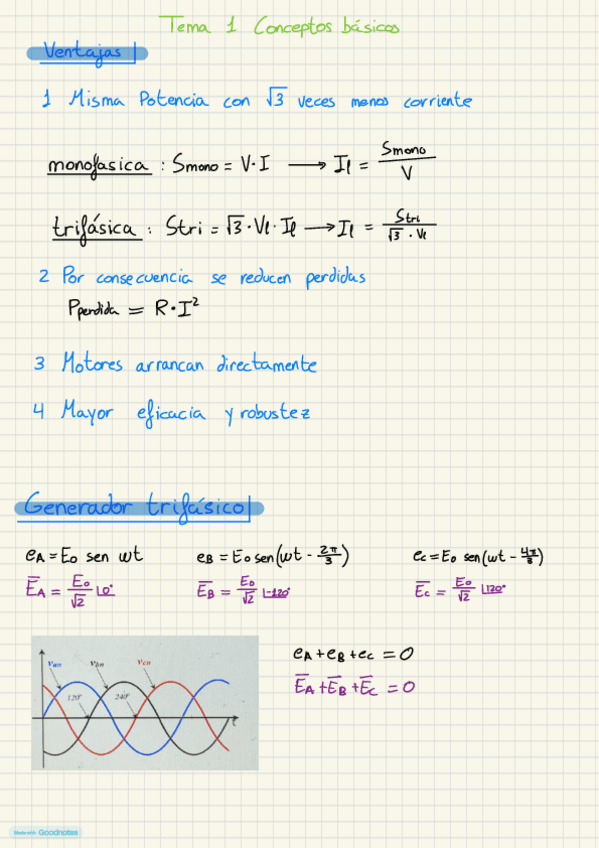 Tema 1 Conceptos básicos
Ventajas
1 Misma Potencia con √3 veces menos corriente
monofasica : Smono = V·I ⟶ Il = Smono/V
trifásica : Stri = √3·Vl·Il ⟶ Il = Stri/(√3·Vl)
2 Por consecuencia se reducen perdidas
Pperdida = R·I²
3 Motores arrancan directamente
4 Mayor eficacia y robustez
Generador trifásico
eA = Eo sen wt eB = Eo sen(wt - 2π/3) ec = Eo sen(wt - 4π/3)
E̅A = Eo/√2 ∠0° E̅B = Eo/√2 ∠-120° E̅c = Eo/√2 ∠120°
van vbn vcn
120° 240°
t
eA + eB + ec = 0
E̅A + E̅B + E̅c = 0
Made with Goodnotes